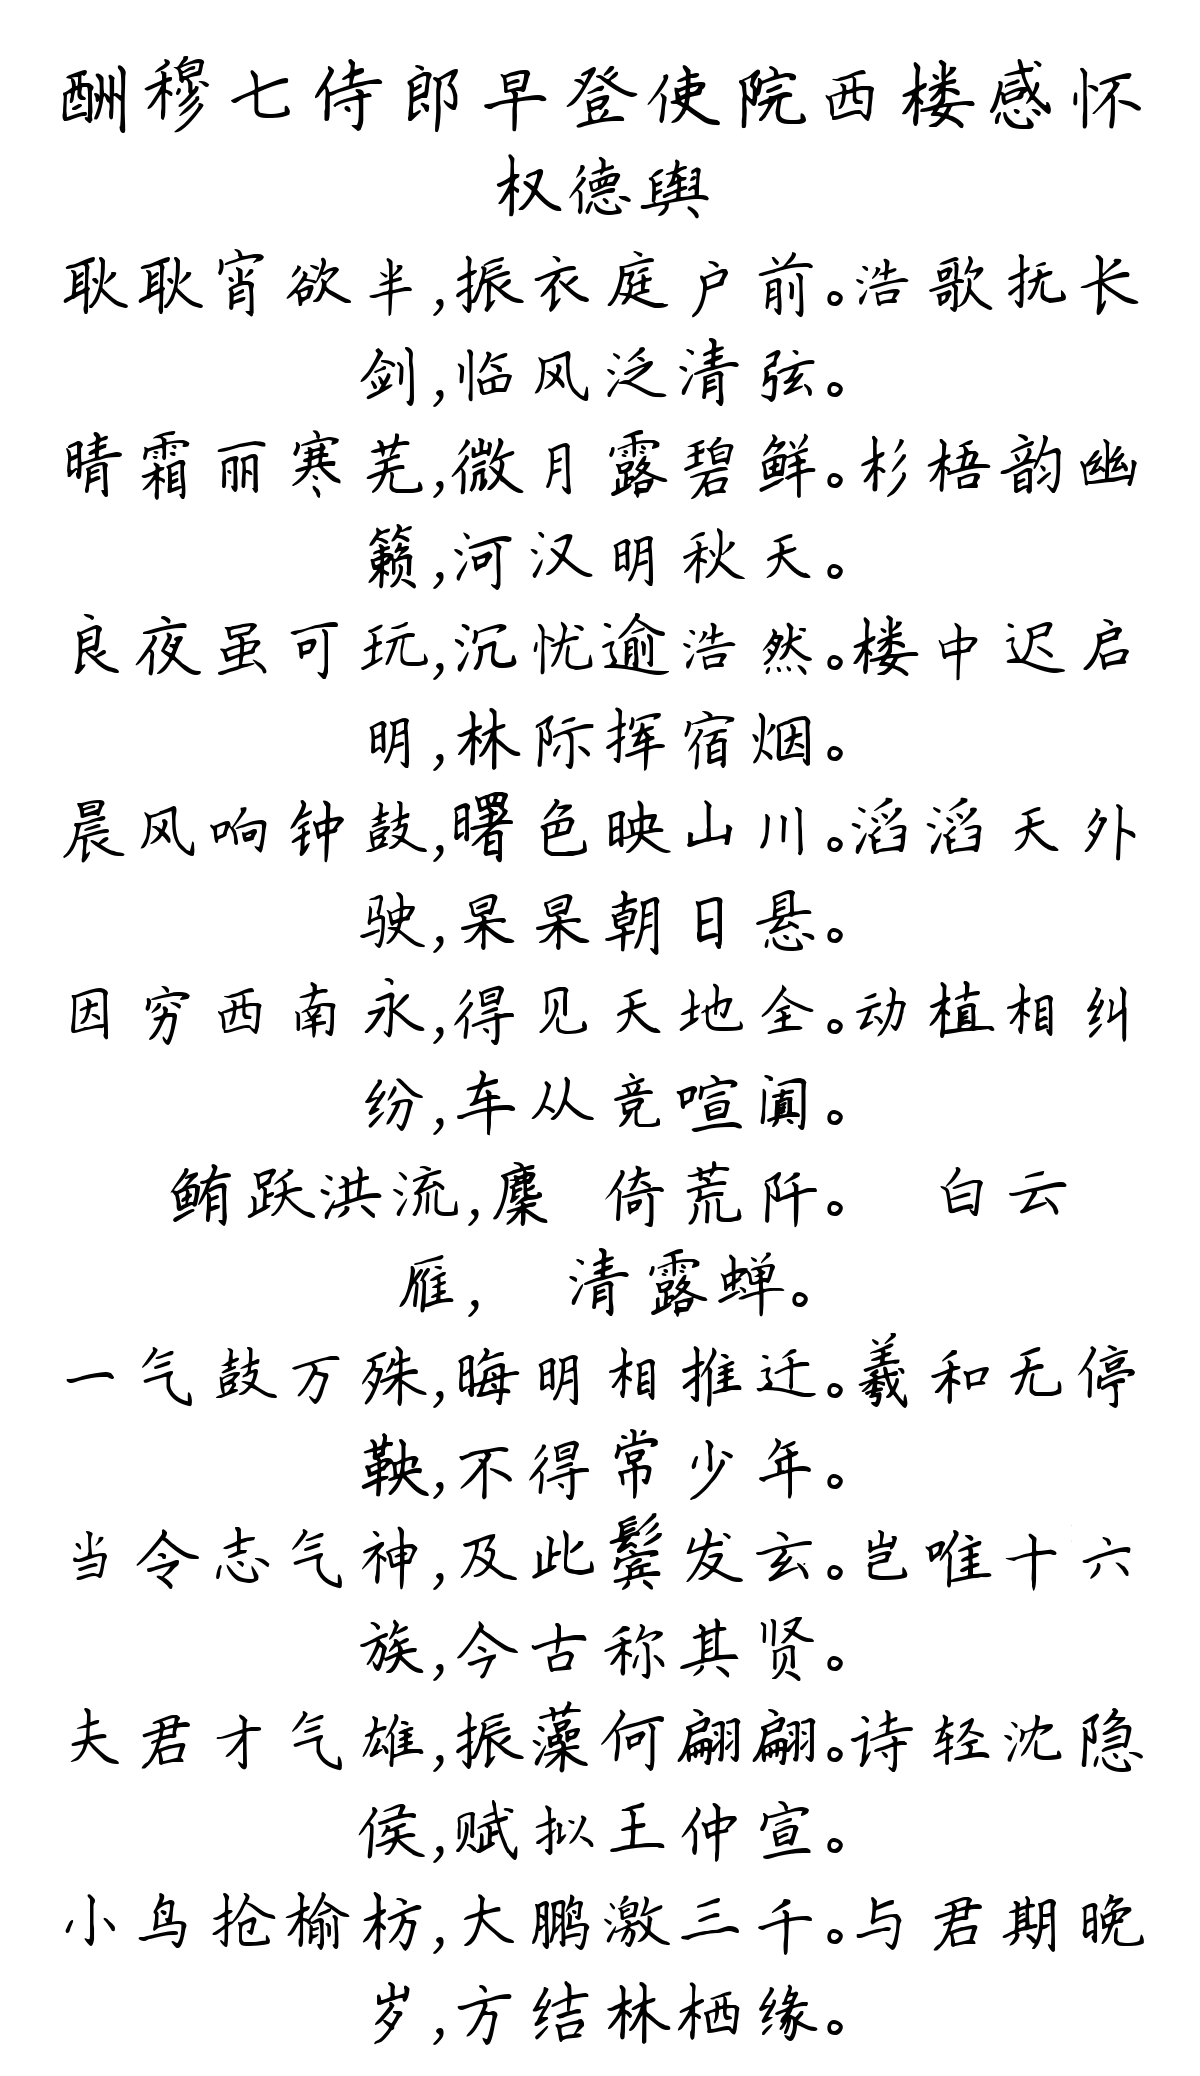 酬穆七侍郎早登使院西楼感怀
权德舆
耿耿宵欲半,振衣庭户前。浩歌抚长
剑,临风泛清弦。
晴霜丽寒芜,微月露碧鲜。杉梧韵幽
籁,河汉明秋天。
良夜虽可玩,沉忧逾浩然。楼中迟启
明,林际挥宿烟。
晨风响钟鼓,曙色映山川。滔滔天外
驶,杲杲朝日悬。
因穷西南永,得见天地全。动植相纠
纷,车从竞喧阗。
鲔跃洪流,麇 倚荒阡。 白云
雁, 清露蝉。
一气鼓万殊,晦明相推迁。羲和无停
鞅,不得常少年。
当令志气神,及此鬓发玄。岂唯十六
族,今古称其贤。
夫君才气雄,振藻何翩翩。诗轻沈隐
侯,赋拟王仲宣。
小鸟抢榆枋,大鹏激三千。与君期晚
岁,方结林栖缘。